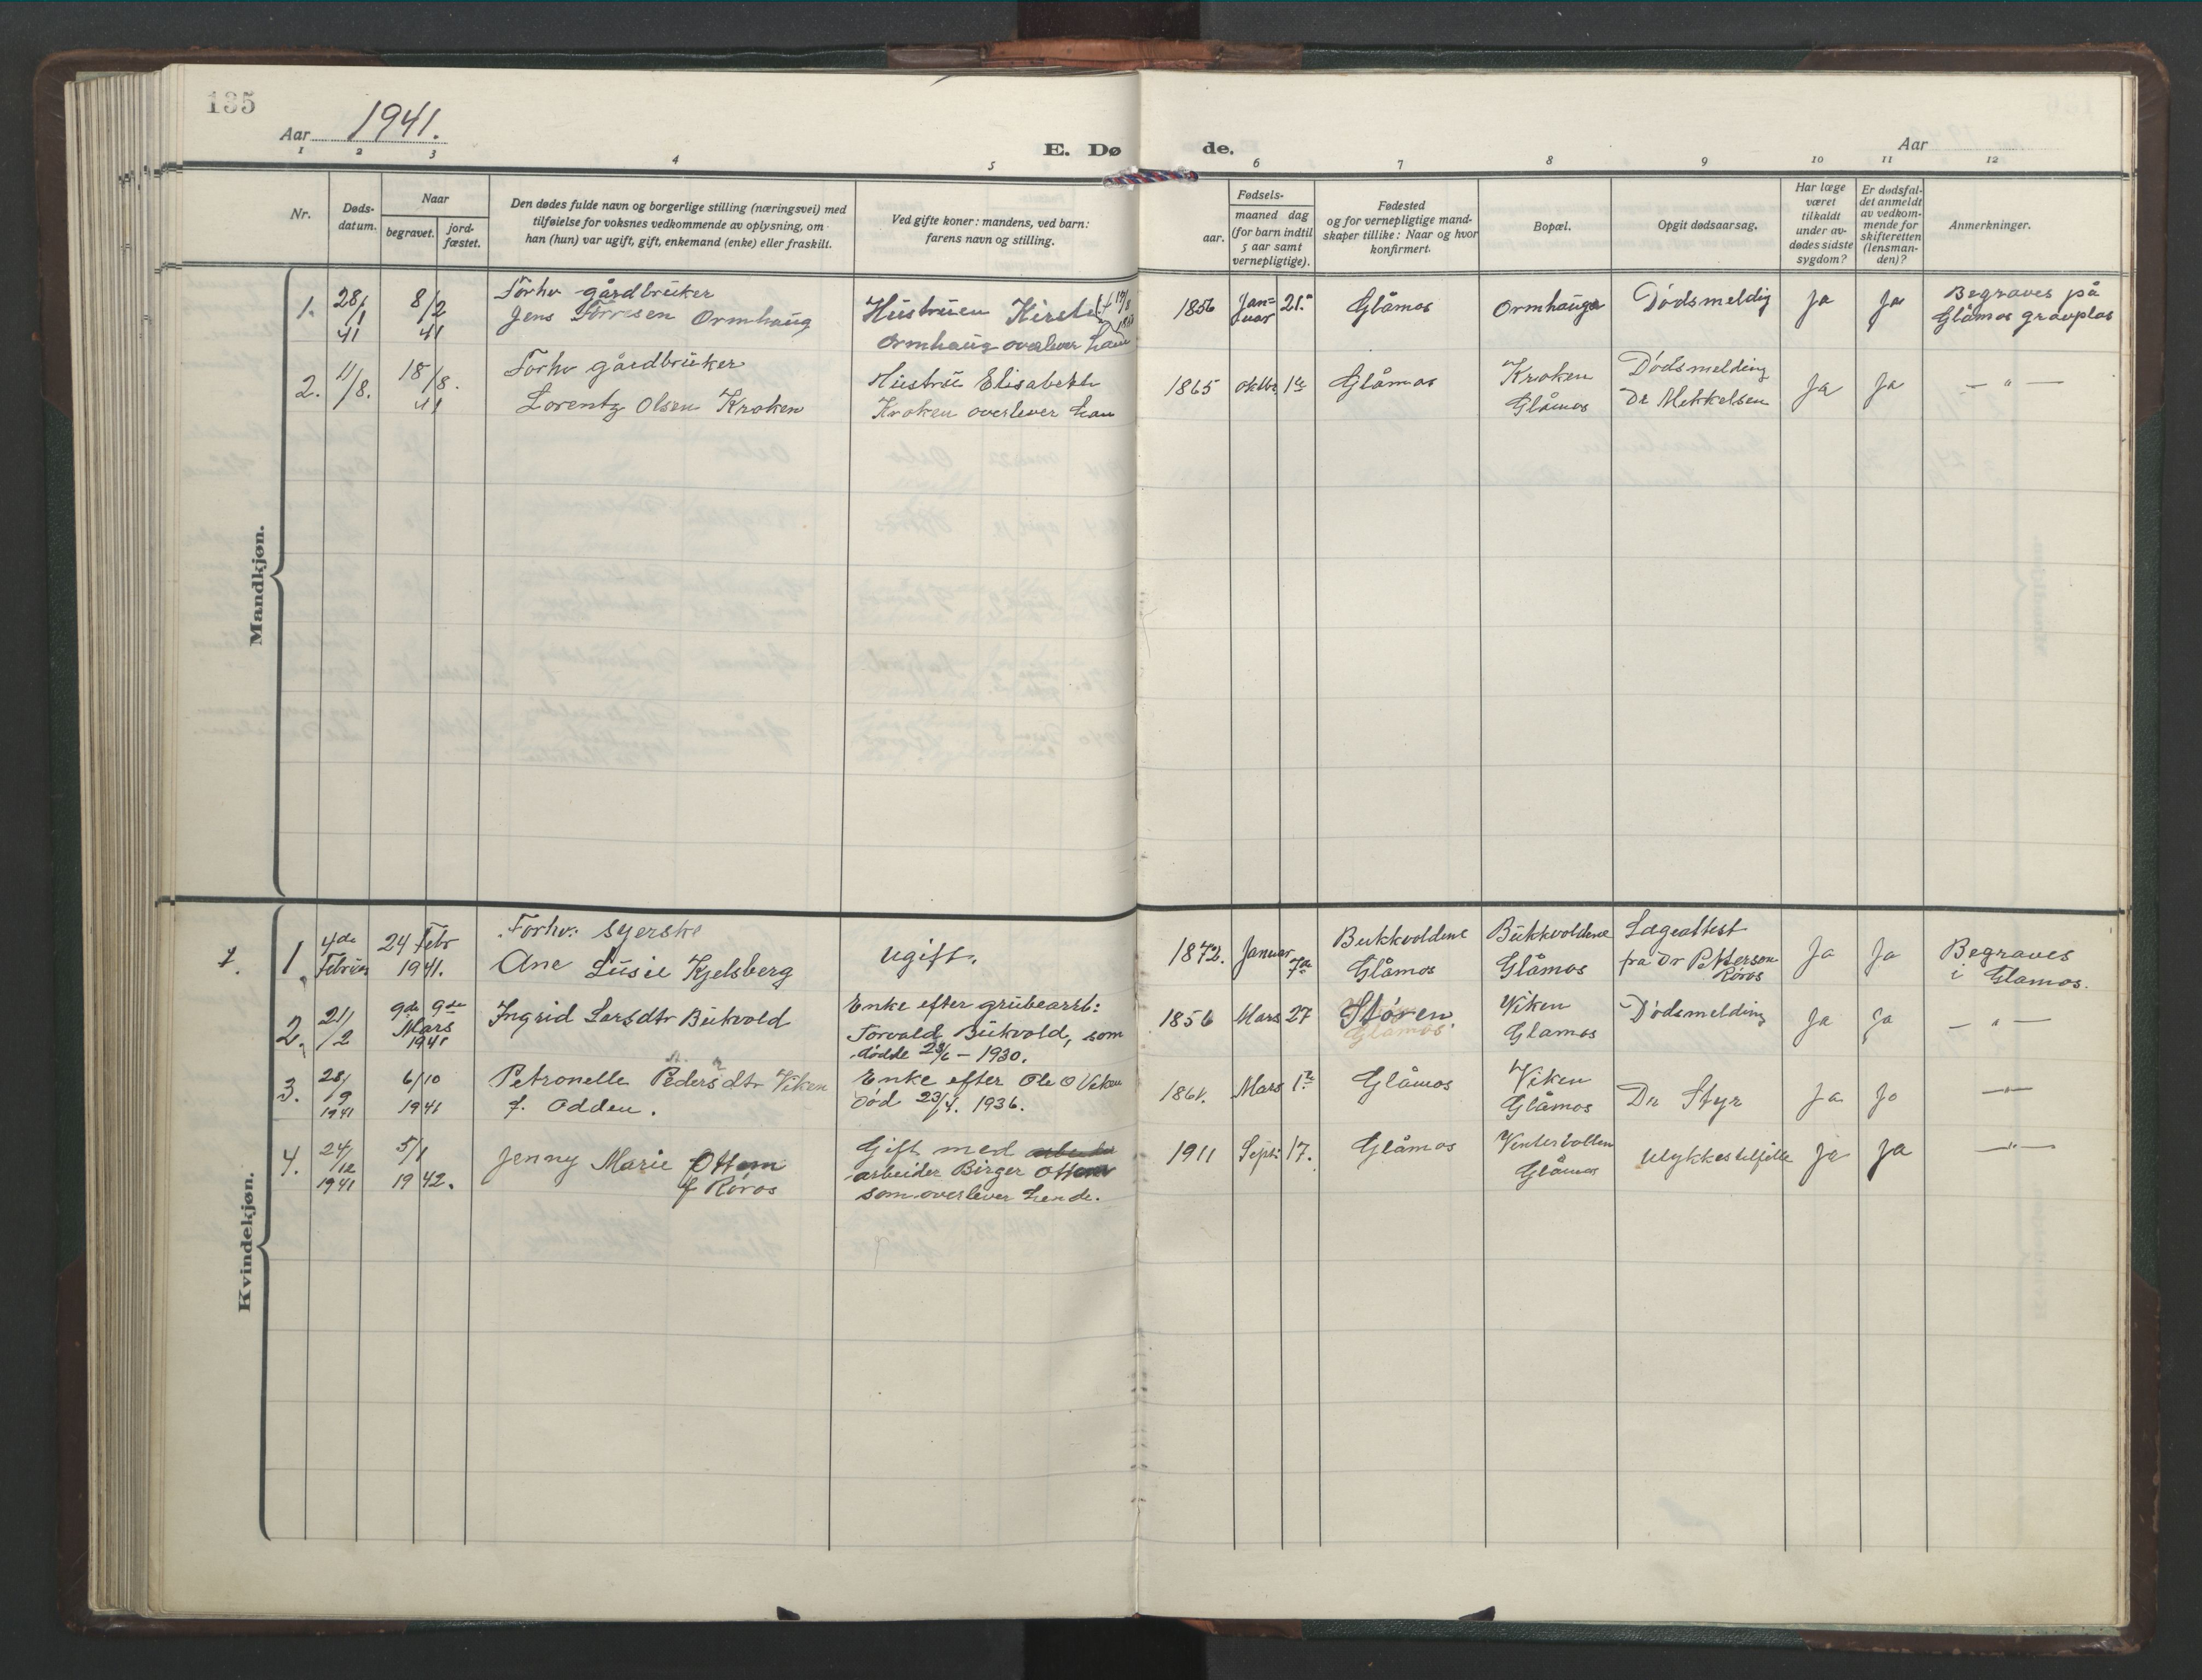 135
Aar 1941.
E. Dø de.
Aar
1 2 3 4 5 6 7 8 9 10 11 12
Nr.
Døds-
datum.
Naar
begravet.
jord-
fæstet.
Den dødes fulde navn og borgerlige stilling (næringsvei) med
tilføielse for voksnes vedkommende av oplysning, om
han (hun) var ugift, gift, enkemand (enke) eller fraskilt.
Ved gifte koner: mandens, ved barn:
farens navn og stilling.
Fødsels-
aar.
maaned dag
(for barn indtil
5 aar samt
vernepligtige).
Fødested
og for vernepligtige mand-
skaper tillike: Naar og hvor
konfirmert.
Bopæl.
Opgit dødsaarsag.
Har læge
været
tilkaldt
under av-
dødes sidste
sygdom?
Er dødsfal-
det anmeldt
av vedkom-
mende for
skifteretten
(lensman-
den)?
Anmerkninger.
Mandkjøn.
1. 28/1 41 8/2 41
Forhv gårdbruker
Jens Torresen Ormhaug
Hustruen Kirsti
Ormhaug overlever ham
1856 Jan=
uar 21. Glåmos Ormhauga Dødsmeldig Ja Ja
Begraves på
Glåmos gravplas
2. 11/8. 18/8. 41
Forhv gårdbruker
Lorentz Olsen Kroken
Hustru Elisabeth
Kroken overlever ham
1865 oktbr 1ste Glåmos
Kroken
Glåmos
Dødsmelding
Dr Mekkelsen
Ja Ja — " —
Kvindekjøn.
1. 4de
Februar
24 Febr
1941.
Forhv: syerske
Ane Lusie Kjelsberg
ugift.
1872. Januar 7de
Bukkvoldene
Glåmos
Bukkvoldene
Glåmos
Lægeattest
fra Dr Petterson
Røros
Ja Ja
Begraves
i Glamos.
2. 21/2
9de 9de
Mars
1941
Ingrid Larsdtr Bukvold
Enke efter grubearb:
Torvald Bukvold, som
dødde 23/6 – 1930.
1856 Mars 27 Støren.
Glåmos.
Viken
Glamos
Dødsmelding Ja Ja — " —
3. 28/9
1941
6/10
1941
Petronelle Pedersdtr Viken
f. Odden.
Enke efter Ole O Viken
Død 23/4. 1936.
1861. Mars 1ste Glåmos
Viken
Glåmos
Dr Styr Ja Ja — " —
4. 24/12
1941
5/1
1942.
Jenny Marie Ottem
f Røros
Gift med
arbeider Birger Ottem
som overlever hende.
1911 Sept: 17. Glåmos
Vintervollen
Glåmos
Ulykkestilfelle Ja Ja — " —